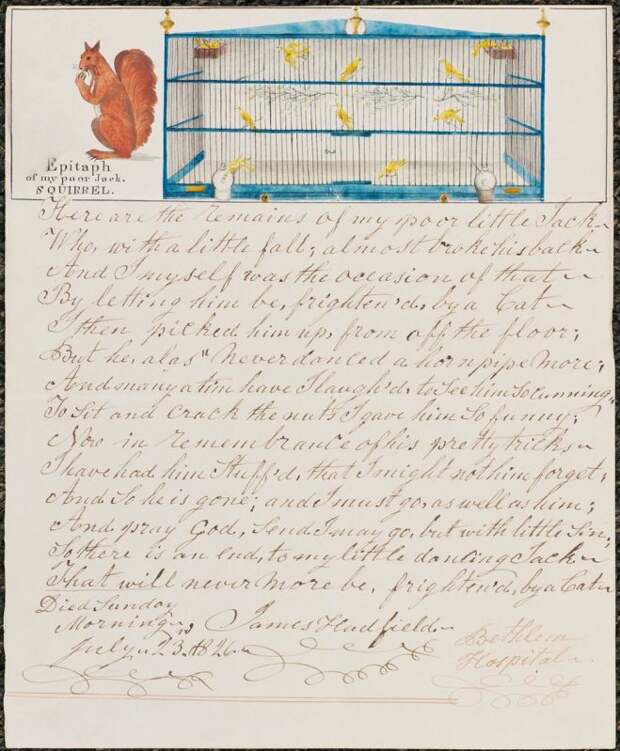 Epitaph
of my poor Jack.
SQUIRREL.
Here are the remains of my poor little Jack
Who, with a little fall; almost broke his back
And I myself was the occasion of that
By letting him be, frighten'd, by a Cat
I then picked him up, from off the floor;
But he, alas" never danced a hornpipe more;
And many a tim have I laugh'd, to See him So cunning
To Sit and crack the nuts I gave him So funny;
Now in remembrance of his pretty tricks
I have had him Stuff'd, that I might not him forget;
And So he is gone; and I must go, as well as him;
And pray God, Send I may go, but with little Sin;
So there is an end, to my little dancing Jack
That will never more be, frighten'd, by a Cat
Died Sunday
Morning, James Hadfield.
July 23, 1826
Bethlem
Hospital